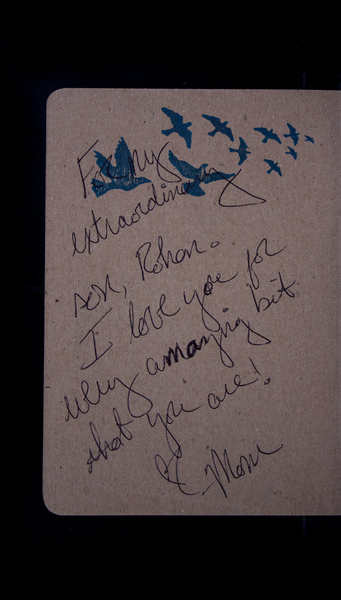 For my
extraordinary
son, Rohan.
I love you for
every amazing bit
that you are!
Mom